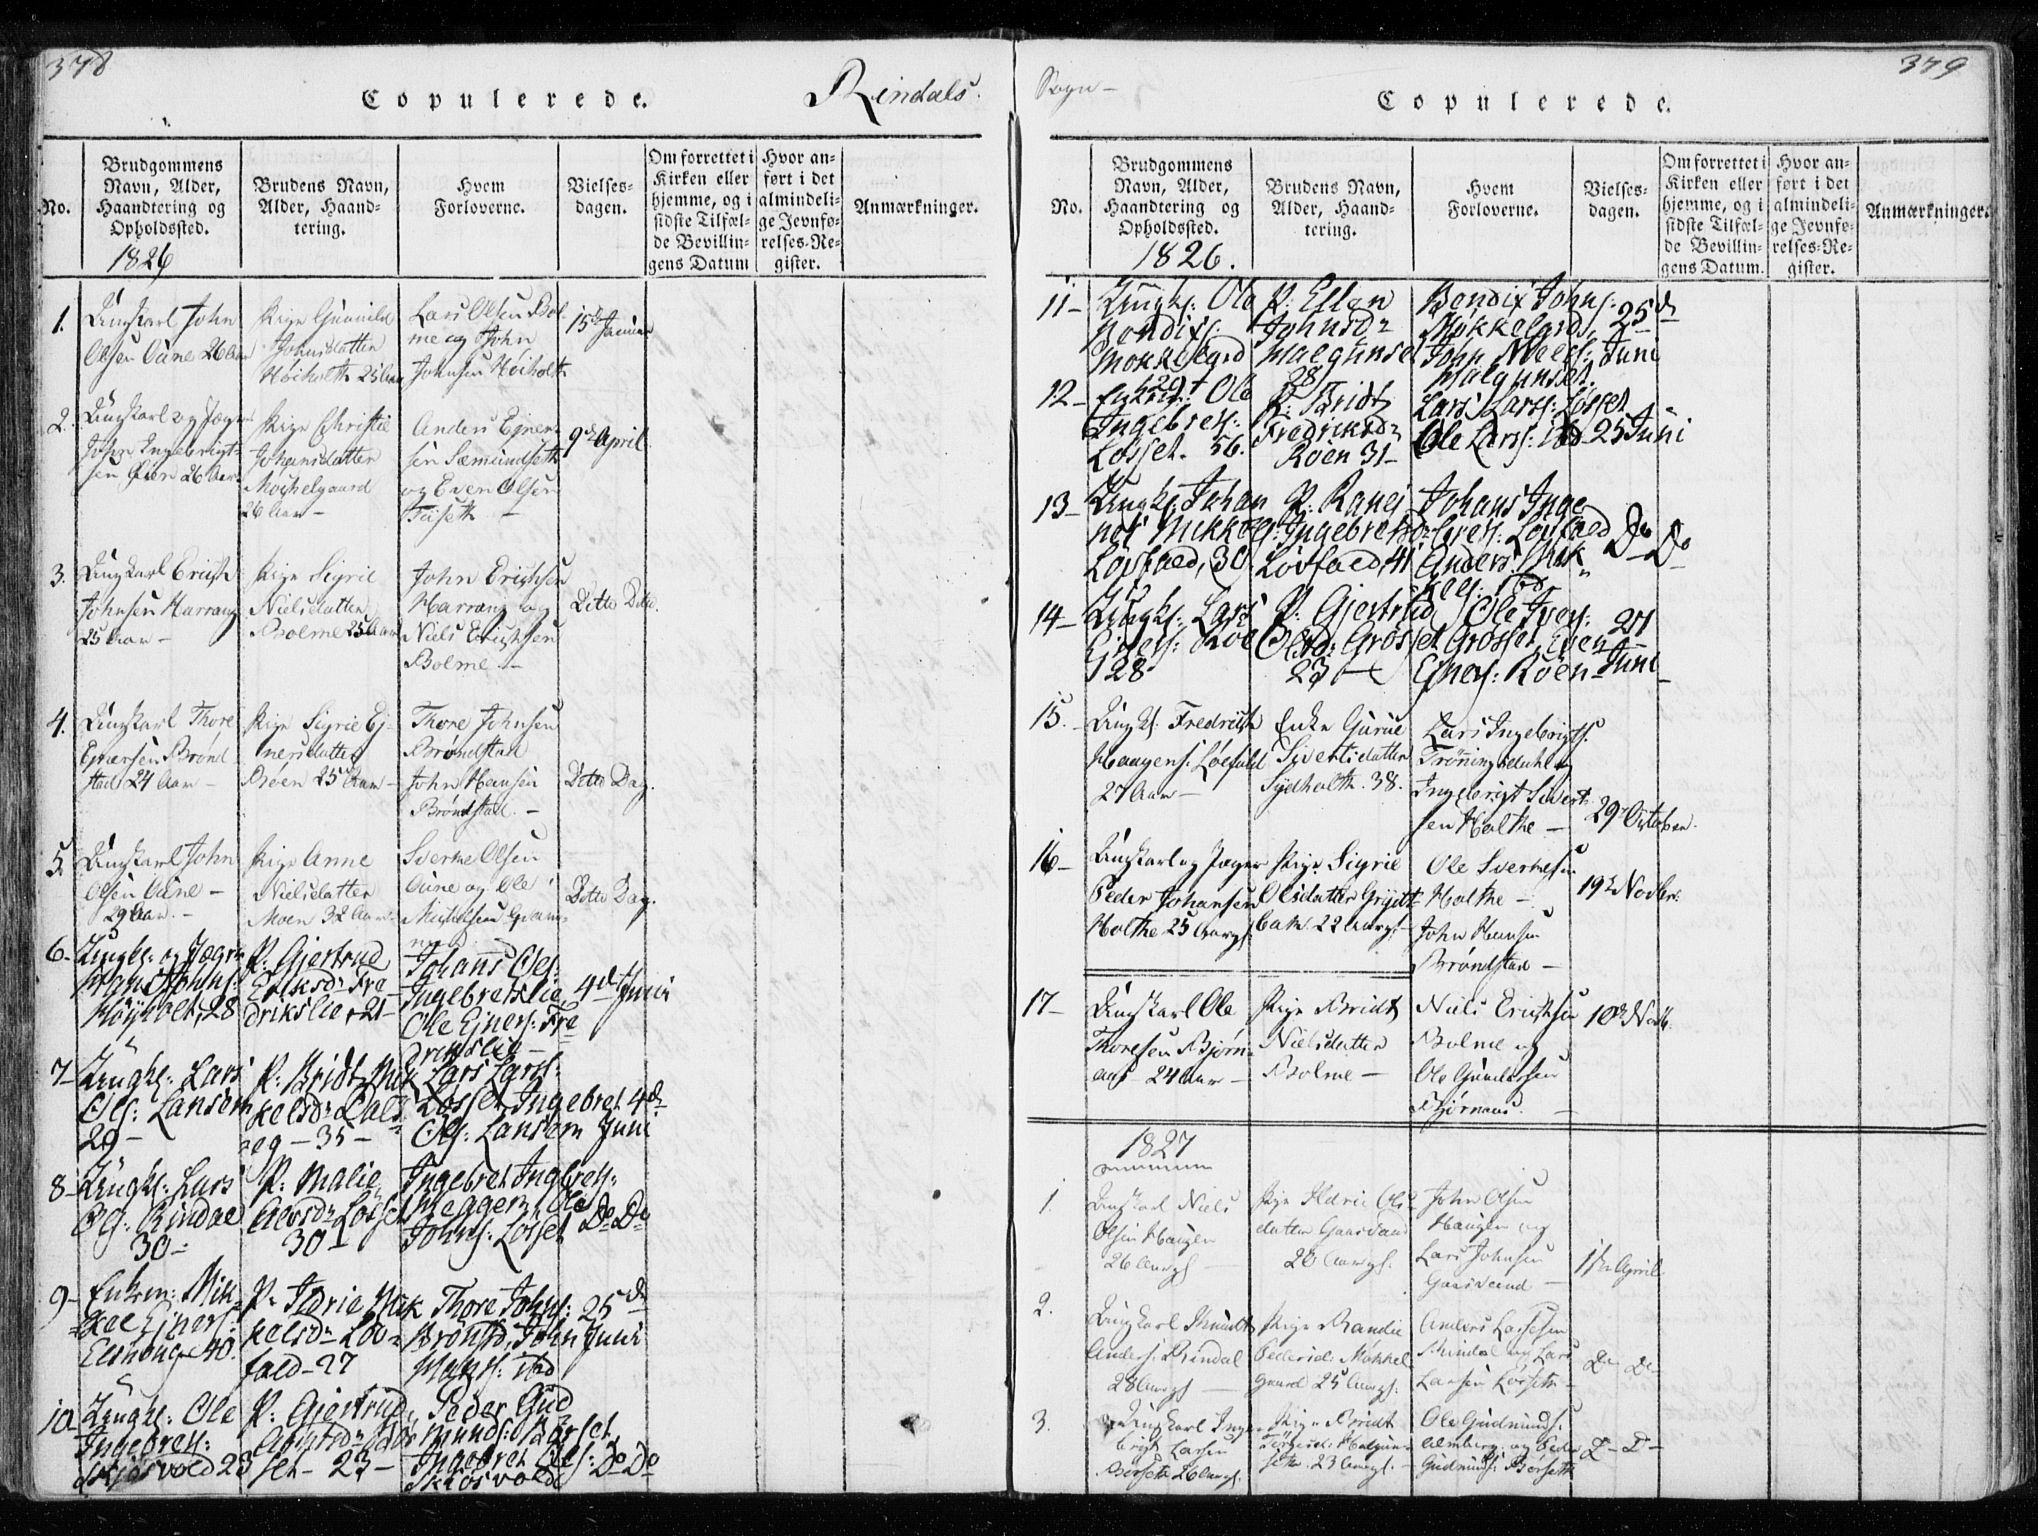 378
Copulerede.
Rindals
No.
Brudgommens Navn, Alder, Haandtering og Opholdssted.
Brudens Navn, Alder, Haandtering.
Hvem Forloverne.
Vielsesdagen.
Om forrettet i Kirken eller hjemme, og i sidste Tilfælde Bevillingens Datum
Hvor anført i det almindelige Jevnførelses-Register.
Anmærkninger.
1826
1.
Ungkarl John
Olsen Aune 26 Aar
Pige Gunnild
Johnsdatter
Høiholt 25 Aar
Lars Olsen Bol
me og John
Johnsen Høiholt
15de Januar
2.
Ungkarl og Jæger
John Ingebrigt-
sen 26 Aar
Pige Christie
Johansdatter
Mochelgaard
26 Aar –
Anders Ejner-
sen Sæmundseth
og Even Olsen
9de April
3.
Ungkarl Erich
Johnsen Harrang
25 Aar –
Pige Sigrie
Nielsdatter
Bolme 25 Aar
John Erichsen
Harrang og
Niels Erichsen
Bolme –
Ditto Ditto.
4.
Ungkarl Thore
Ejnersen Brønd
stad 24 Aar –
Pige Sigrie Ej-
nersdatter
Roen 25 Aar –
Thore Johnsen
Brøndstad
John Hansen
Brøndstad. –
Ditto Dag.
5.
Ungkarl John
Olsen Aune –
29 Aar. –
Pige Anne
Nielsdatter
Moen 32 Aar.
Sverke Olsen
Aune og Ole
Ditto Dag.
6–
Ungk: og Jæger
Hans Johns:
Høyholt, 28
P: Gjertrud
Eriksdr Fre
drikslie, 21–
Johans Ols:
Ingebretslie,
Ole Ejners: Fre
drikslie –
4de Juni
7–
Ungk: Lars
Ols: Lansem
29 –
P: Bridt Mik
kelsdr Dals
eg – 35 –
Lars Lars:
Løsset, Ingebret
Ols: Lansem
4de
Juni
8–
Ungk: Lars
Ols: Rindal
30 –
P: Malie
Løsset
30 –
Ingebret Ingebrets:
Megger, Ole
Johns: Løsset
Do Do
9–
Enkem: Mik
kel Ejners:
40.
P. Ildrie Mik
kelsdr Løv
fald – 27
Thore Johns:
Brønsd, John
ibd
25de
Juni
10
Ungk: Ole
Ingebrets:
23
P: Gjertrud
set – 23 –
Peder Gud
munds: Børset,
Ingebret Ols:
Skiørsvold
Do Do
Sogn –
379
Copulerede.
No.
Brudgommens Navn, Alder, Haandtering og Opholdssted.
Brudens Navn, Alder, Haandtering.
Hvem Forloverne.
Vielsesdagen.
Om forrettet i Kirken eller hjemme, og i sidste Tilfælde Bevillingens Datum.
Hvor anført i det almindelige Jevnførelses-Register.
Anmærkninger.
1826.
11–
Ungk: Ole
Bendixs:
Mokkelgrd
29
P: Ellen
Johnsdr
Halgunset
28
Bendix Johns:
Mokkelgrd,
John Niels:
Halgunset.
25de
Juni
12–
Ole
Ingebrets:
Løsset. 56.
P: Bridt
Fredriksdr
Roen 31–
Lars Lars: Løsset
Ole Lars: ibd –
25 Juni
13–
Ungk: Johan
nes Mikkels:
Løvfald, 30
P: Ranei
Ingebretsdr
Løvfald, 41
Johans Inge
brets: Løvfald
Anders Mik
kels: ibd
Do Do
14–
Ungk: Lars
Ejners: Roe
28
P: Gjertrud
Olsdr Grøsset
23 –
Ole Ivers:
Grøsset, Even
Ejners: Roen –
Juni
15.
Ungk. Fredrich
Haagens. Løefald
27 Aar –
Enke Gurue
Sivertsdatter
Sydholth. 38.
Lars Ingebrigts.
Trønningsdahl og
Ingebrigt Sivert
sen Holthe –
29 October.
16–
Ungkarl og Jæger
Peder Johansen
Holthe 25 Aargl.
Pige Sigrie
Olsdatter Grytt-
bak. 22 Aarg. –
Ole Sverkesen
Holthe –
John Hansen
Brøndstad –
19de Novbr.
17–
Ungkarl Ole
Thoresen Bjørn-
aas – 24 Aar –
Pige Bridt
Nielsdatter
Bolme –
Niels Erichsen
Bolme og
Ole Gundersen
Bjørnaas. –
10de Novb.
1827
1.
Ungkarl Niels
Olsen Haugen
26 Aargl –
Pige Ildrie Ols-
datter Gaasvand
20 Aargl.
John Olsen
Haugen og
Lars Johnsen
Gaasvand –
April
2.
Ungkarl Knudt
Anders. Rindal
28 Aargl –
Pige Randie
Pedersd. Mokkel
gaard 25 Aargl.
Anders Larsen
Rindal og Lars
Larsen Løsseth –
Do Do
3.
Ungkarl Inge
brigt Larsen
Børseth 26 Aargl.
Pige Bridt
Halgun-
seth. 23 Aargl. –
Ole Gudmunds.
Almberg. og Peder
Gudmunds. Børseth
D– D–